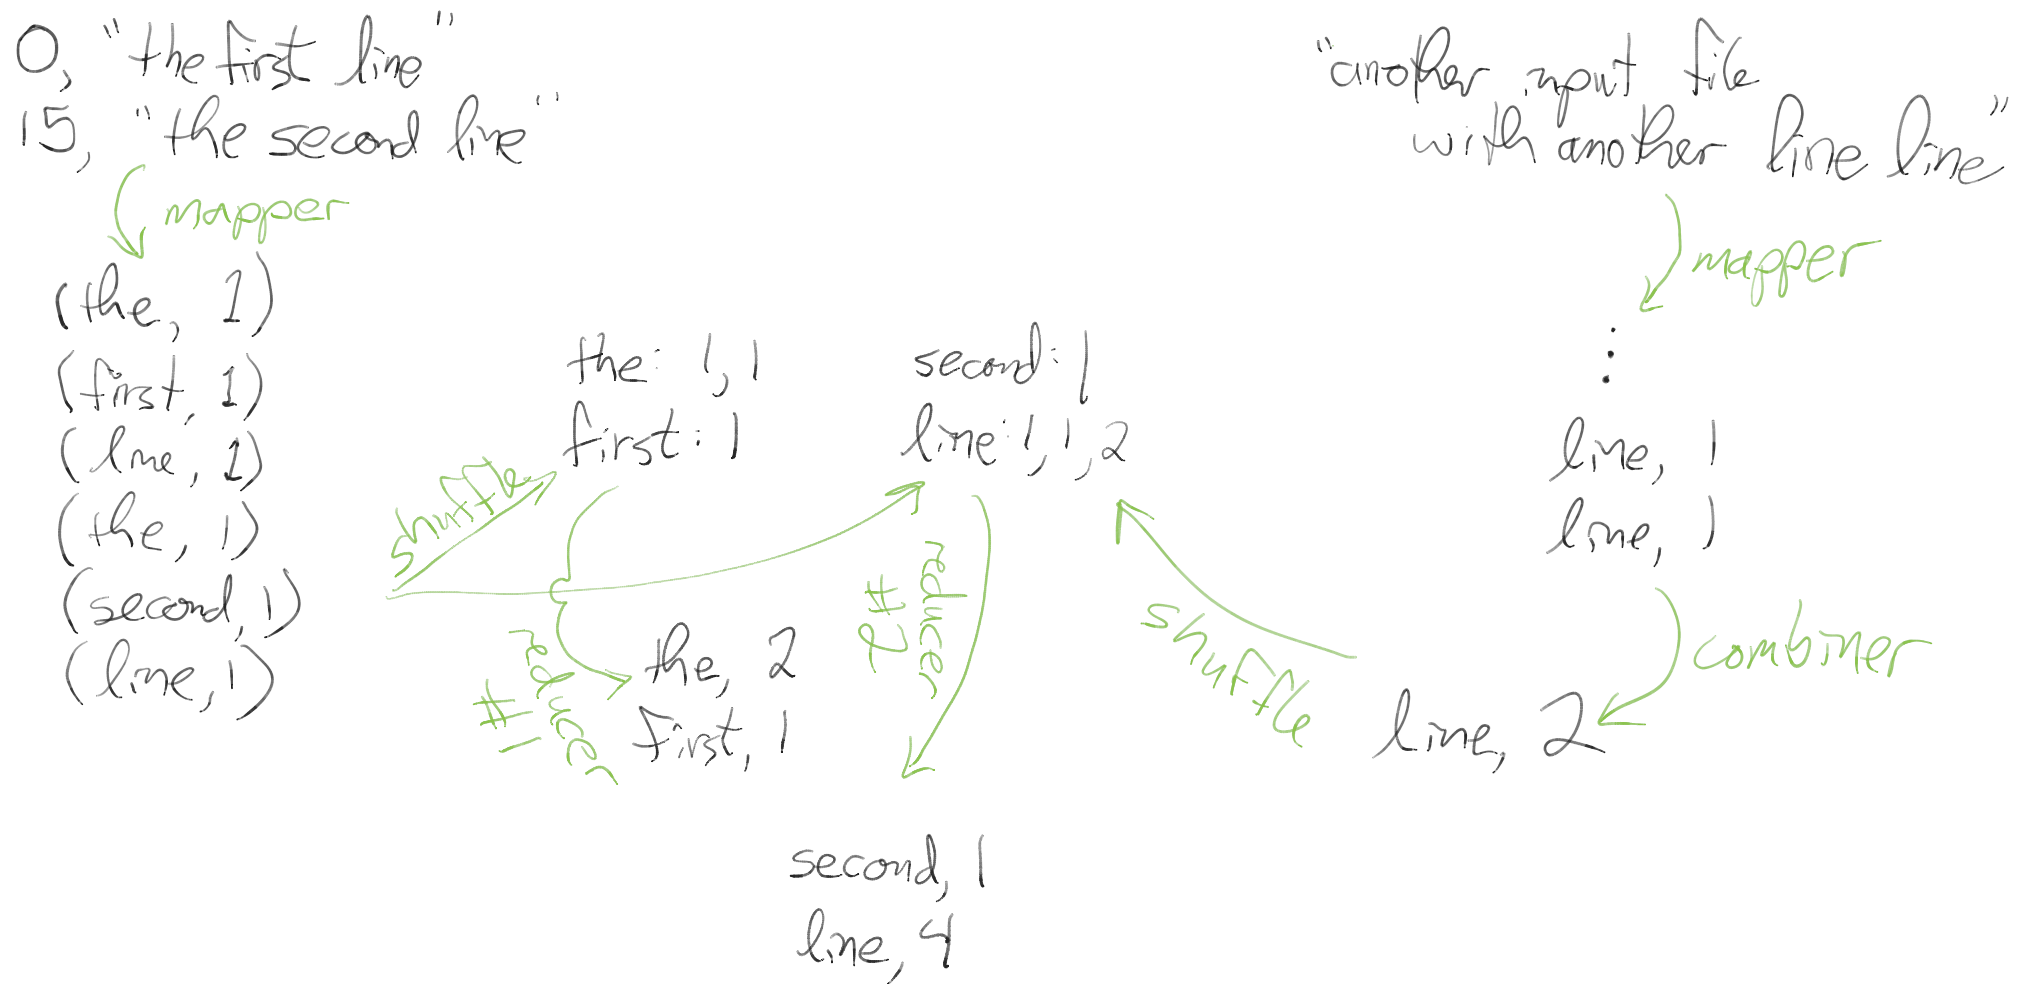 0, "the first line"
15, "the second line"
mapper
(the, 1)
(first, 1)
(line, 1)
(the, 1)
(second, 1)
(line, 1)
shuffle
the: 1, 1
first: 1
reducer
#1
the, 2
first, 1
second: 1
line: 1, 1, 2
reducer
#2
second, 1
line, 4
"another input file
with another line line"
mapper
⋮
line, 1
line, 1
combiner
line, 2
shuffle